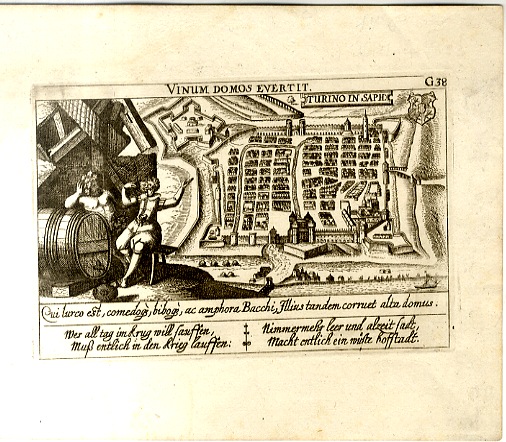 VINUM DOMOS EVERTIT.
G38
TURINO IN SAPHOI
Qui lurco est, comedoq́;, biboq́;, ac amphora Bacchi, Illius tandem corruet alta domus.
Wer all tag im Krug will sauffen,
Muß entlich in den Krieg lauffen:
Nimmermehr leer und alzeit satt,
Macht entlich ein wüste hoffstadt.